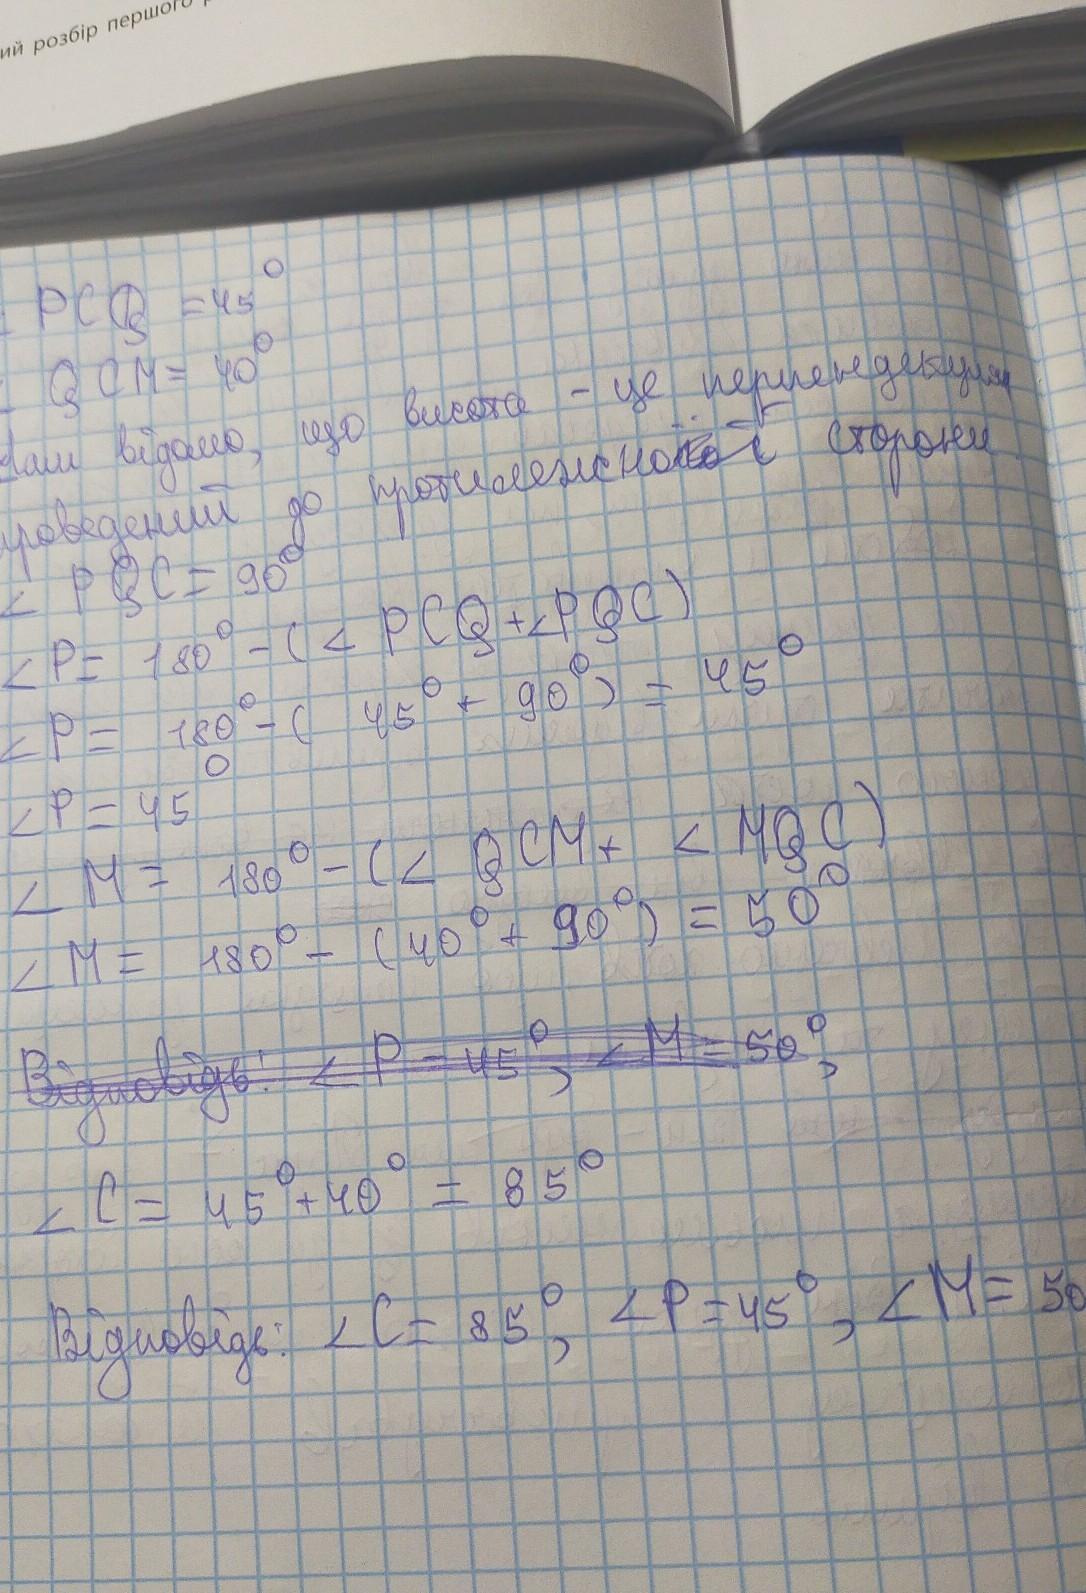 ий розбір першого
PCQ = 45°
QCM = 40°
Нам відомо, що висота - це перпендикуляр
проведений до протилежної сторони
∠ PQC = 90°
∠P = 180° - (∠ PCQ + ∠PQC)
∠P = 180° - ( 45° + 90°) = 45°
∠P = 45°
∠ M = 180° - (∠ QCM + ∠ MQC)
∠ M = 180° - (40° + 90°) = 50°
Відповідь: ∠ P = 45°, ∠ M = 50°,
∠ C = 45° + 40° = 85°
Відповідь: ∠C = 85°, ∠P = 45°, ∠M = 50